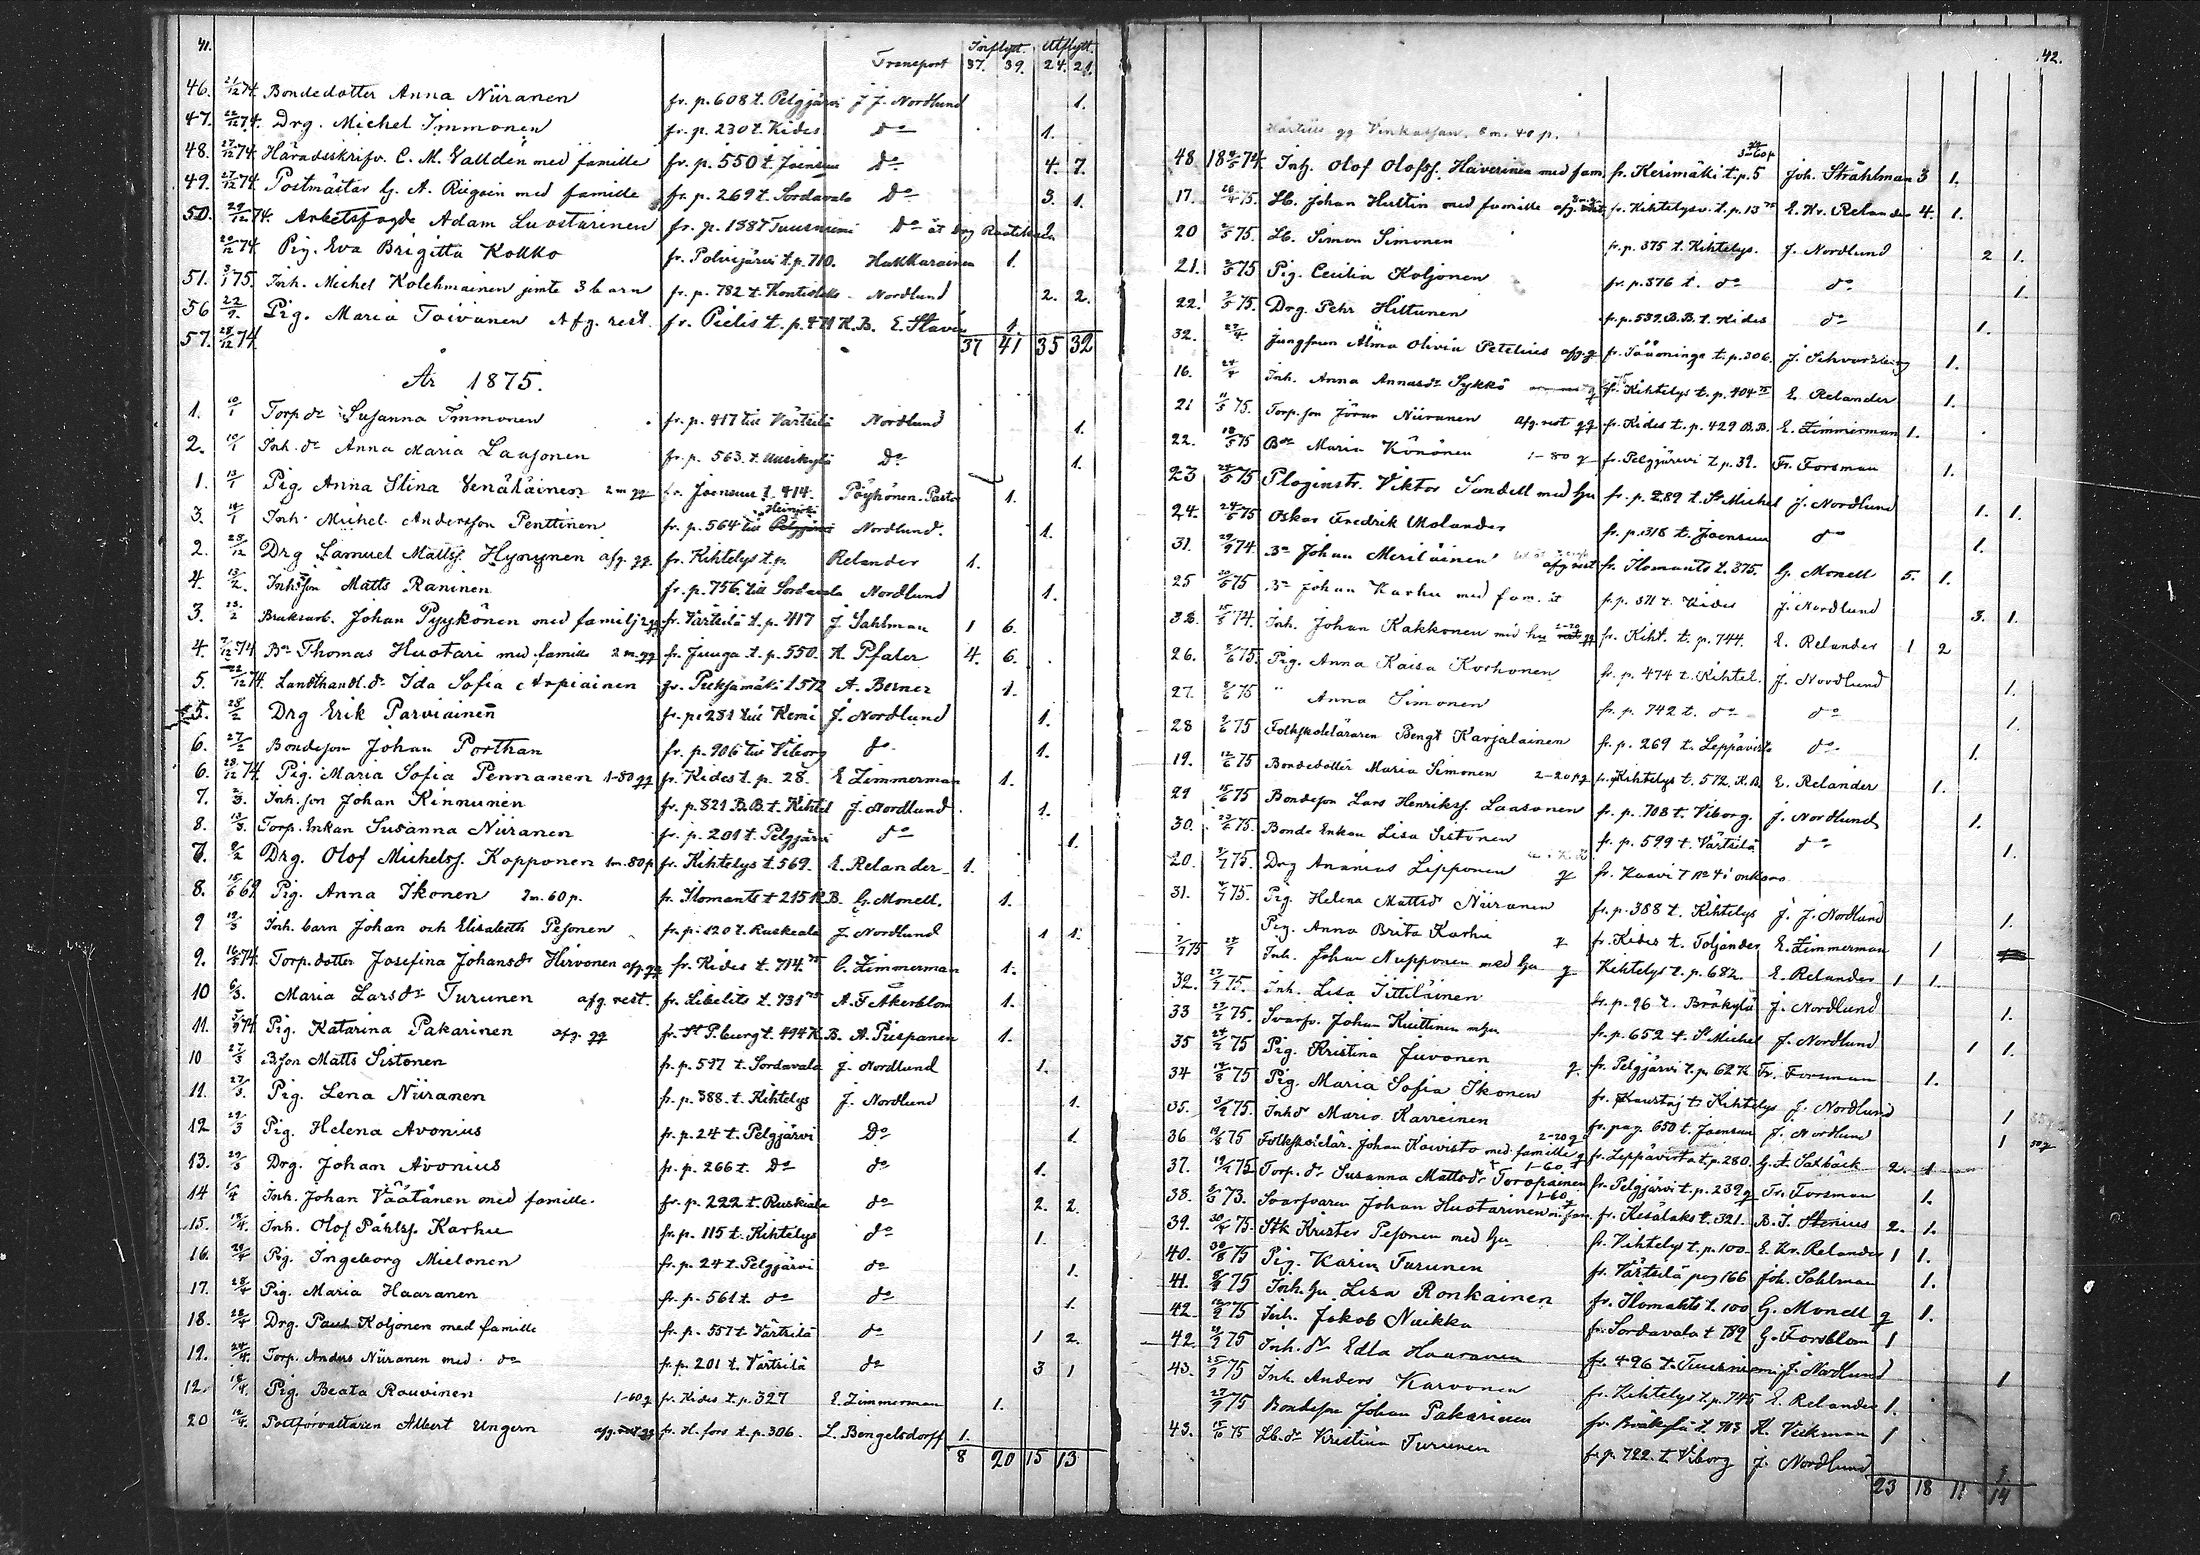 41.
Inflytt. Utflytt.
Transport 37. 39. 24. 21.
46. 21/12 74 Bondedotter Anna Niiranen fr. p. 608 t. Pelgjärvi J. J. Nordlund 1.
47. 22/12 74. Drg. Michel Immonen fr. p. 230 t. Kides do 1.
48. 27/12 74. Häradsskrifv. C. M. Valldén med famille fr. p. 550 t. Joensuu Do 4. 7.
49. 27/12 74 Postmästar G. A. med famille fr. p. 269 t. Sordavala Do 3. 1.
50. 29/12 74. Arbetsfogde Adam Luostarinen fr. p. 1587 Tuusniemi Do
20/12 74 Pig. Eva Brigitta Kokko fr. Polvijärvi t. p. 710. Hakkarainen 1.
51. 3/1 75. Inh. Michel Kolehmainen jemte 3 barn fr. p. 782 t. Kontiolaks Nordlund 2. 2.
56 22/9. Pig. Maria Toivanen Afg. rest. fr. Pielis t. p. 471 K.B. E. Stavén 1.
57. 28/12 74 37 41 35 32
År 1875.
1. 10/1 Torp dr Susanna Immonen fr. p. 417 till Värtsilä Nordlund 1.
2. 10/1 Inh. dr Anna Maria Laasonen fr. p. 563. t. Uusikylä Do 1.
1. 13/1 Pig. Anna Stina Venäläinen 2 m gg fr. Joensuu t. 414. Pöyhönen. Pastor 1.
3. 14/1 Inh. Michel Andersson Penttinen fr. p. 564 till Pelgjärvi Nordlund. 1.
2. 29/12 Drg Samuel Mattss. Hynynen afg. gg. fr. Kihtelys t. p. Relander 1.
4. 13/2. Inh. son Matts Raninen fr. p. 756. till Sordavala Nordlund 1.
3. 13/2 Bruksarb. Johan Pyykönen med familj fr. Värtsilä t. p. 417 J. Sahlman 1 6.
4. 7/12 74 Bn Thomas Huotari med famille 2 m. gg fr. Juuga t. p. 550. K. Pfaler 4. 6.
5. 22/12 74. Landthandl. dr Ida Sofia Arpiainen fr. Pieksämäki 1572 A. Berner 1.
5. 28/2 Drg Erik Parviainen fr. p. 251 till Kemi J. Nordlund 1.
6. 27/2 Bondeson Johan Porthan fr. p. 906 till Viborg do. 1.
6. 28/12 74. Pig. Maria Sofia Pennanen 1-80 gg fr. Kides t. p. 28. E Zimmerman 1.
7. 2/3. Inh. son Johan Kinnunen fr. p. 821 B.B t. Kihtel J. Nordlund. 1.
8. 13/3. Torp. Enkan Susanna Niiranen fr. p. 201 t. Pelgjärvi do 1.
7. 9/2 Drg. Olof Michelss. Kopponen 1m. 80p fr. Kihtelys t. 569. E. Relander 1.
8. 15/6 69. Pig. Anna Ikonen 2m. 60 p. fr. Ilomants t 215 K.B. G. Monell. 1.
9 19/3 Inh. barn Johan och Elisabeth Pesonen fr. p. 120 t. Ruskeala J. Nordlund 1 1.
9. 16/5 74. Torp. dotter Josefina Johansdr Hirvonen afg. gg fr. Kides t. 714. 75 E. Zimmerman 1.
10 6/3. Maria Larsdr Turunen afg. rest. fr. Libelits t. 731 75 A. F Åkerblom 1.
11. 5/9 74 Pig. Katarina Pakarinen afg. gg fr. St P.burg t. 494 K.B. A. Piispanen 1.
10 27/3 B.son Matts Sistonen fr. p. 597 t. Sordavala J. Nordlund 1.
11. 27/3. Pig. Lena Niiranen fr. p. 388. t. Kihtelys J. Nordlund 1.
12 29/3 Pig. Helena Avonius fr. p. 24 t. Pelgjärvi Do 1.
13. 29/3 Drg. Johan Avonius fr. p. 266 t. Do do 1.
14 1/4 Inh. Johan Väätänen med famille. fr. p. 222 t. Ruskeala do 2. 2.
15. 18/4. Inh. Olof Påhlss. Karhu fr. p. 115 t. Kihtelys do 1.
16. 20/4 Pig. Ingeborg Mielonen fr. p. 24 t. Pelgjärvi do 1.
17. 28/4 Pig. Maria Haaranen fr. p. 561 t. do do 1.
18. 28/4 Drg. Paul Koljonen med famille fr. p. 557 t. Värtsilä do 1 2.
19. 28/4. Torp. Anders Niiranen med do fr. p. 201 t. Värtsilä do 3 1
12. 18/4. Pig. Beata Rouvinen 1-60 g fr. Kides t. p. 327 E. Zimmerman 1.
20 12/4. Postförvaltaren Albert Ungern afg. rest gg fr. H.fors t. p. 306. L. Bengelsdorff 1.
8 20 15 13
42.
48. 18 9/5 74. Inh. Olof Olofss. Haiverinen med fam. fr. Kerimäki t. p. 5 Joh. Stråhlman 3 1.
17. 26/4 75. Lb. Johan Hultin med famille afg. rest fr. Kihtelysv. t. p. 13 75 E. Kr. Relander 4. 1.
20 2/5 75. Lb. Simon Simonen fr. p. 375 t. Kihtelys. J. Nordlund 2 1.
21. 2/5 75 Pig. Cecilia Koljonen fr. p. 376 t. do do 1.
22. 2/5 75. Drg. Pehr Hiltunen fr. p. 539. B.B. t. Kides do 1.
32. 29/4. Jungfrun Alma Olivia Petelius afg. g fr. Sääminge t. p. 306. J. Schvartzberg 1.
16. 24/4 Inh. Anna Annasdr Sykkö fr. Kihtelys t. p. 404 75 E. Relander 1.
21 11/5 75. Torp. son Jöran Niiranen afg. rest gg fr. Kides t. p. 429 B.B. E. Zimmerman 1.
22. 18/5 75 Bdr Maria Könönen 1-80 g fr. Pelgjärvi t. p. 39. Fr. Forsman 1.
23 24/5 75 Ploginstr. Viktor Sundell med hu fr. p. 289 t. St Michel J. Nordlund 1. 1.
24. 24/5 75 Oskar Fredrik Molander fr. p. 318 t. Joensuu do 1.
31. 29/9 74. Bn Johan Meriläinen afg rest fr. Ilomants t. 375. G. Monell 5. 1.
25 30/5 75 Bn Johan Karhu med fam. fr. p. 311 t. Kides J. Nordlund 3. 1.
32. 15/5 74. Inh. Johan Kakkonen med hu 2-20 fr. Kiht. t. p. 744. E. Relander 1 2
26. 2/6 75. Pig. Anna Kaisa Korhonen fr. p. 474 t. Kihtel. J. Nordlund 1.
27. 2/6 75 " Anna Simonen fr. p. 742 t. do do 1.
28 2/6 75 Folkskoleläraren Bengt Karjalainen fr. p. 269 t. Leppävirta do 1.
19. 12/6 75 Bondedotter Maria Simonen 2-20 pg fr. Kihtelys t. 572. K.B. E. Relander 1.
29 15/6 75 Bondeson Lars Henrikss. Laasonen fr. p. 708 t. Viborg. J. Nordlund 1.
30. 23/6 75. Bonde Enkan Lisa Sistonen fr. p. 599 t. Värtsilä do 1.
20. 2/7 75. Drg Ananias Lepponen g fr. Kaavi
31. 4/7 75. Pig. Helena Mattsdr Niiranen fr. p. 388 t. Kihtelys J. J. Nordlund 1.
Pig. Anna Brita Karhu g fr. Kides t. Toljander E. Zimmerman 1
Inh. Johan Nupponen med hu g Kihtelys t. p. 682. E. Relander 1 1.
32. 23/7 75. Inh. Lisa Tittiläinen fr. p. 96 t. Bräkylä J. Nordlund 1.
33 23/7 75. Svarfv. Johan Kiittinen m hu fr. p. 652 t. St Michel J. Nordlund 1 1.
35 24/7 75 Pig. Kristina Juvonen g. fr. Pelgjärvi t. p. 62 K Fr. Forsman 1.
34 14/8 75 Pig. Maria Sofia Ikonen fr. t. Kihtelys J. Nordlund 1
35. 3/9 75. Inhdr Maria Karreinen fr. pag. 650 t. Joensuu J. Nordlund 1
36. 19/8 75 Folkskolelär. Johan Koivisto med famille 2-20 g fr. Leppävirta t. p. 280. G. A. Saxbäck 2. 1.
37. 19/4 75 Torp. dr Susanna Mattsdr Toropainen 1-60 fr. Pelgjärvi t. p. 239 g Fr. Forsman 1.
38. 2/3 73. Svarfvaren Johan Huotarinen m. fam. 1-60 fr. Kesälaks t. 321. B. J. Stenius 2. 1.
39. 30/4 75. Stk Krister Pesonen med hu fr. Kihtelys t. p. 100. E. Kr. Relander 1 1.
40. 30/8 75 Pig. Karin Turunen fr. Värtsilä pag 166 Joh. Sahlman 1.
41. 2/9 75 Inh. hu Lisa Ronkainen fr. Ilomants t. 100 G. Monell g 1.
42. 12/9 75 Inh. Jakob Nuikka fr. Sordavala t 789 G. Forsblom 1
42. 19/9 75 Inh. dr Edla Haaranen fr. 496 t. Tuusniemi J. Nordlund 1
43. 25/9 75 Inh. Anders Karvonen fr. Kihtelys t. p. 745 E. Relander 1.
27/9 75 Bondeson Johan Pakarinen fr. Bräkylä t. 703 K. Vickman 1
43. 15/10 75 Lb. dr Kristiina Turunen fr. p. 722. t. Viborg J. Nordlund 1
23 18 11 14